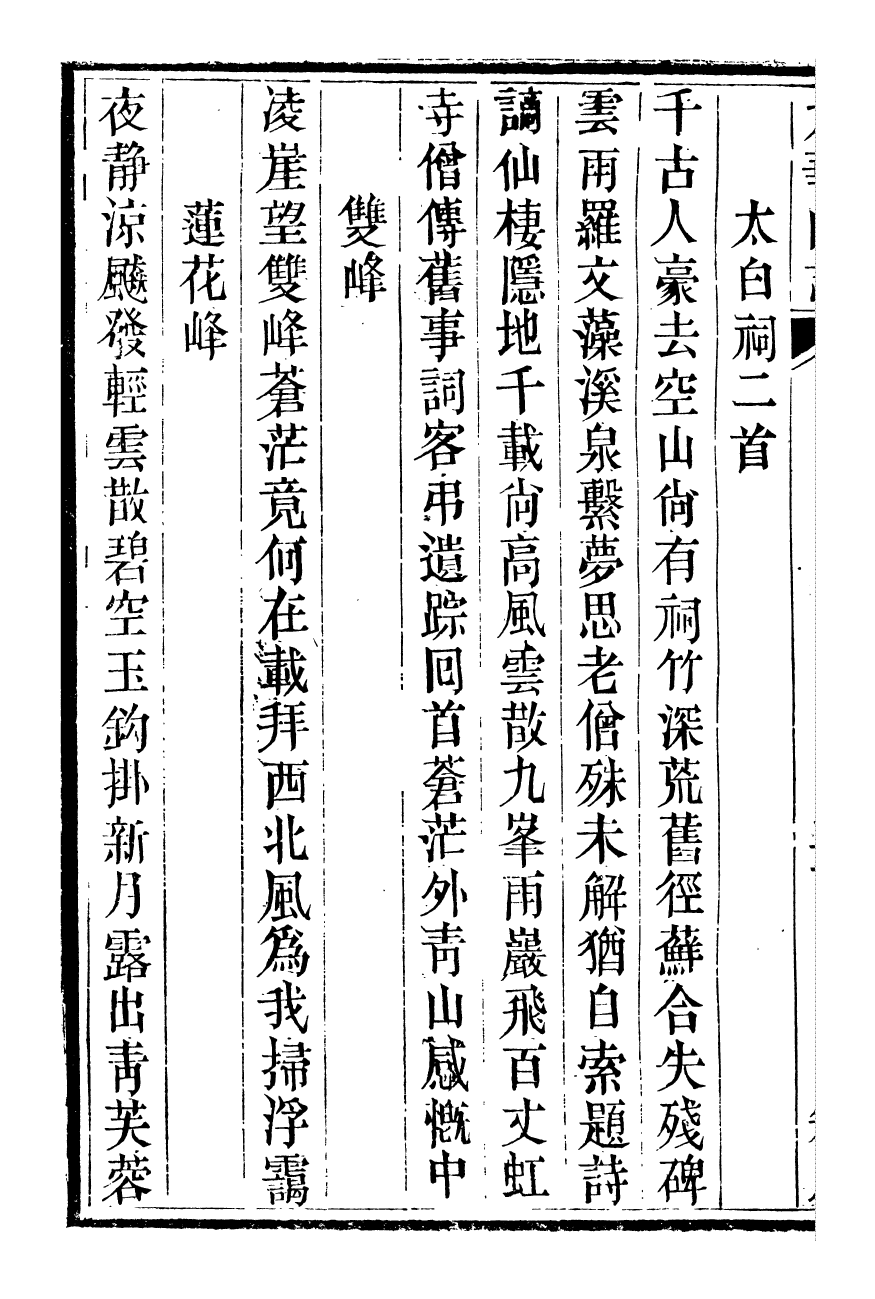 太白祠二首
千古人豪去空山尙有祠竹深荒舊徑蘚合失殘碑
雲雨羅文藻溪泉繫夢思老僧殊未解猶自索題詩
謫仙棲隱地千載尙高風雲散九峯雨巖飛百丈虹
寺僧傳舊事詞客弔遺踪回首蒼茫外靑山感慨中
雙峰
凌崖望雙峰蒼茫竟何在載拜西北風爲我掃浮靄
蓮花峰
夜靜涼飈發輕雲散碧空玉鈎掛新月露出靑芙蓉